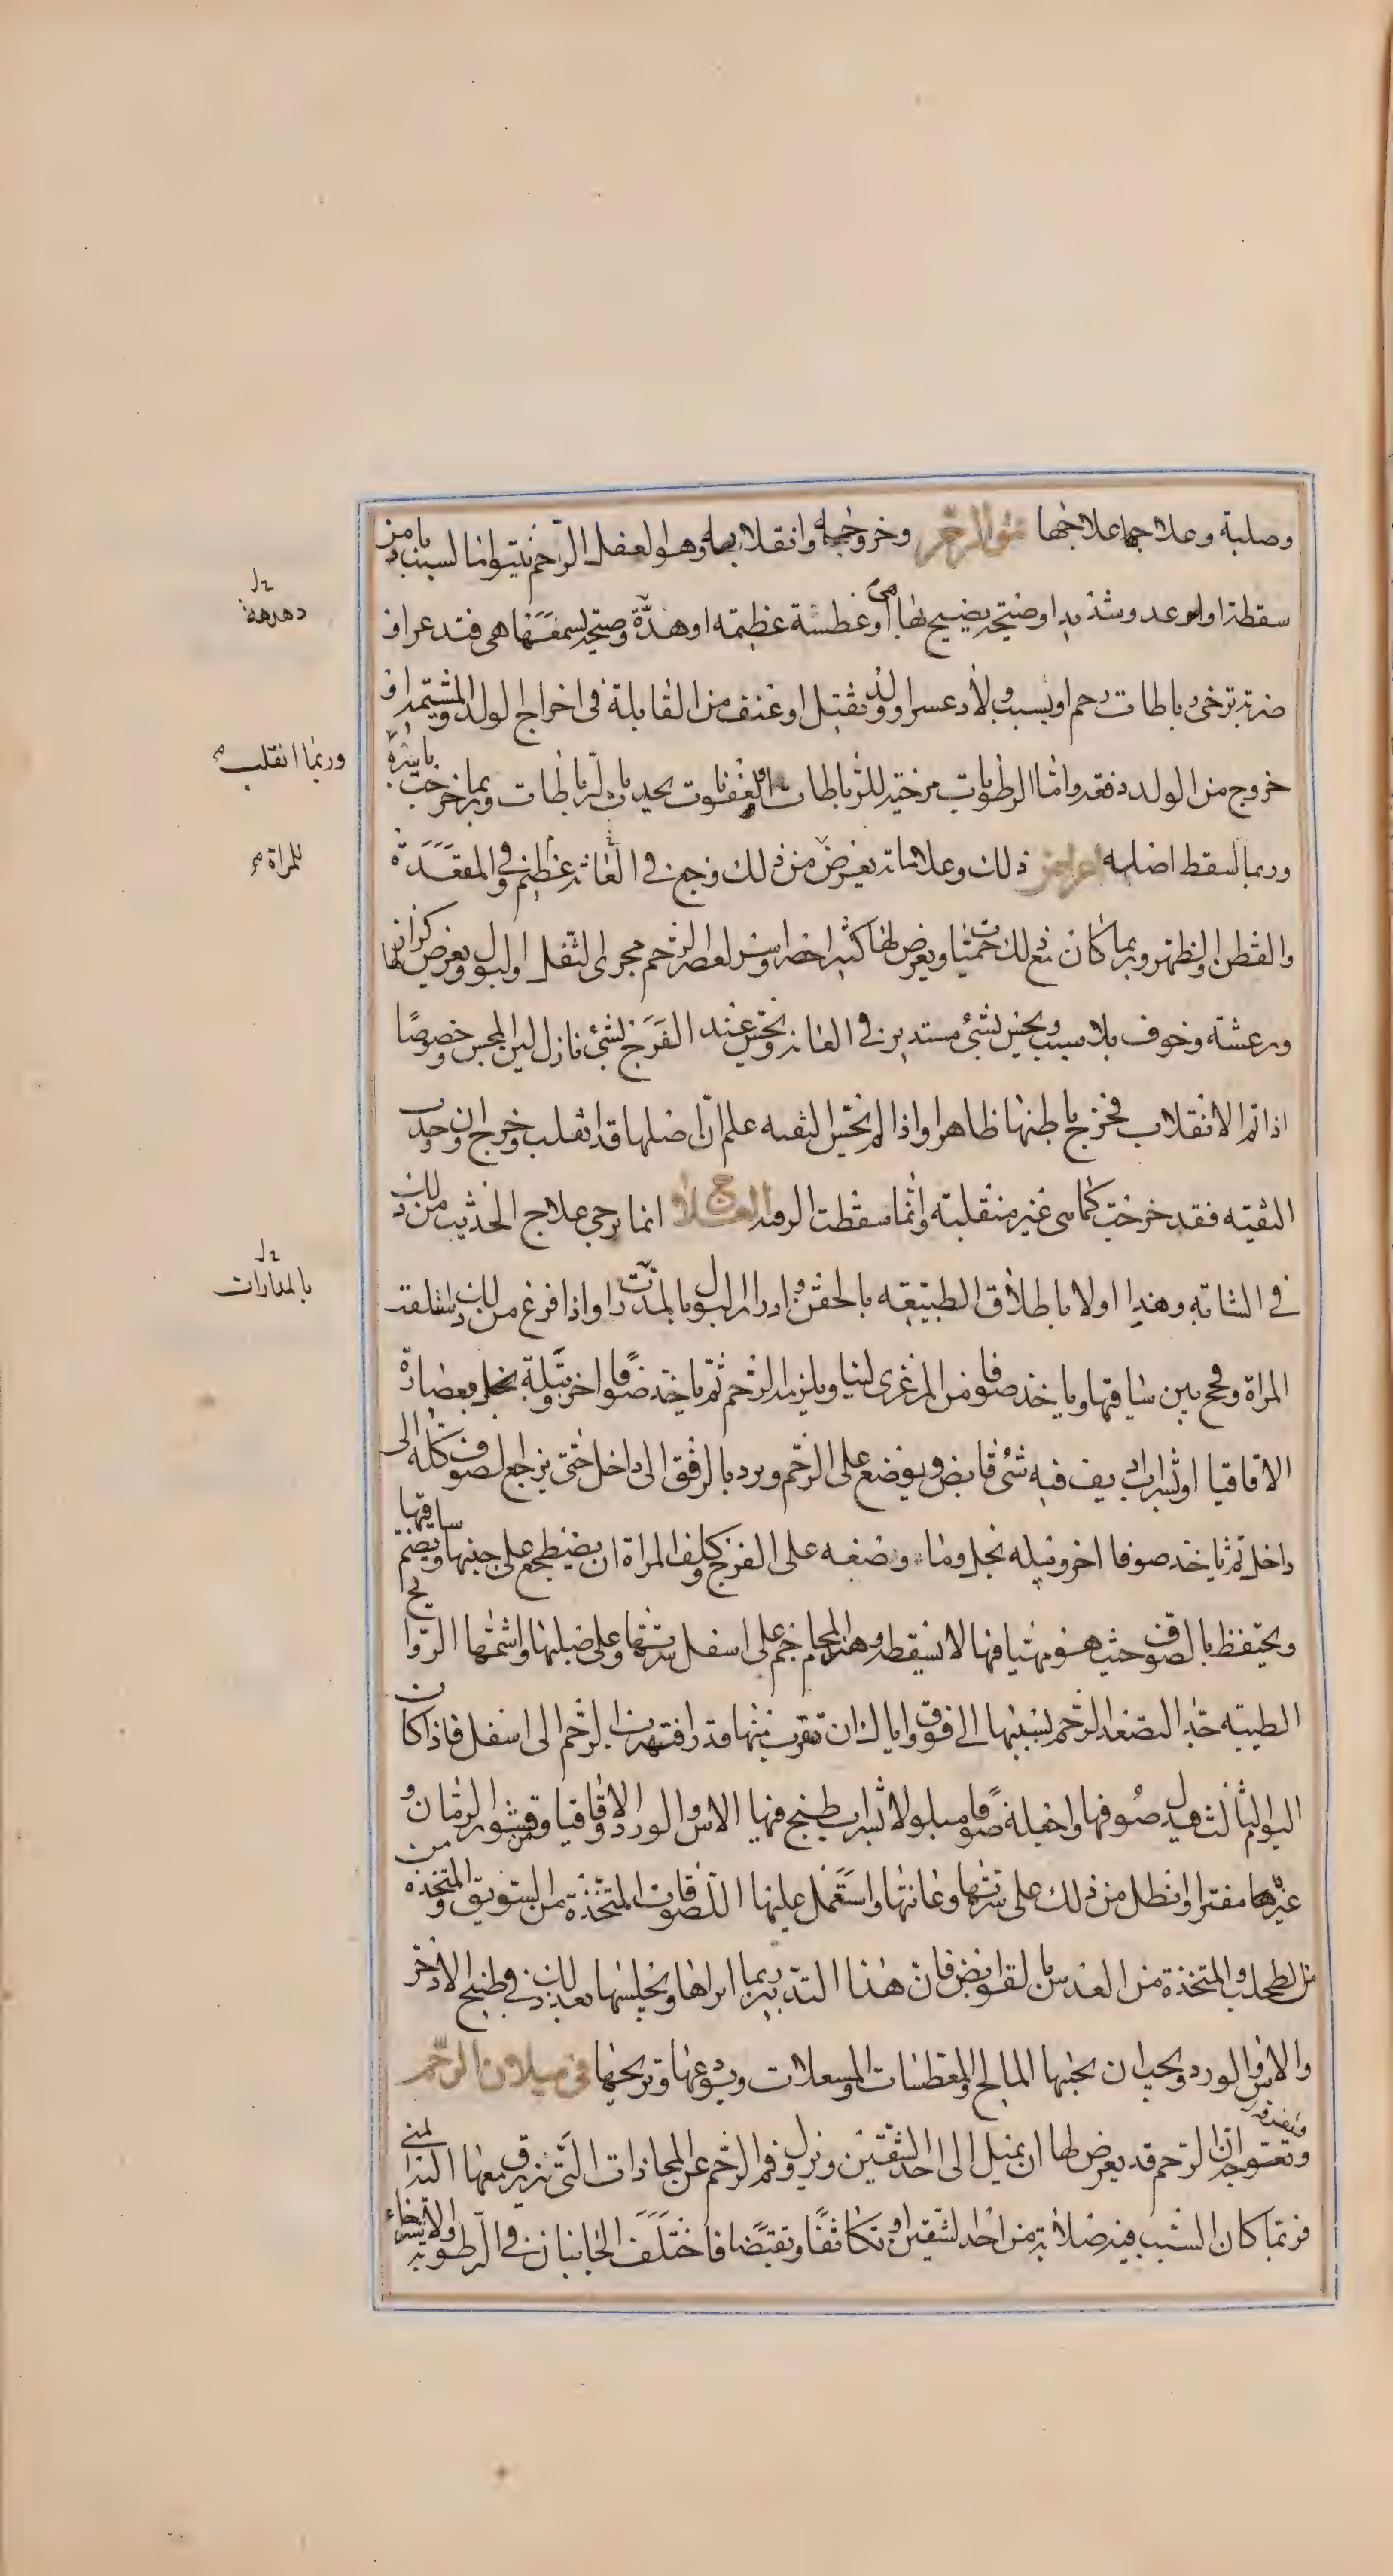 وصلبة وعلاجها علاجها نتو الرحم وخروجها وانقلابها وهو العفل الرحم نتيوا اما لسبب باد من
سقطة او عدو شديد او صيحة يصيح بها هى او عطسة عظيمة او هدة وصيحة تسمعها هى فتذعر او
ضربة ترخى رباطات رحم او بسبب ولاد عسر او ولد ثقيل او عنف من القابلة فى اخراج الولد والمشيمة او
خروج من الولد دفعة واما الرطوبات مرخية للرباطات او لعفونات تحدث بالرباطات وربما خرجت باسره
وربما لسقط اصلها ذلك وعلاماته يعرض من ذلك وجع فى العانة عظيم وفى المقعدة
والقطن والظهر وربما كان مع ذلك حميات ويعرض لها كثيرا حصر لعصر الرحم مجرى الثفل والبول ويعرض لها كزاز
ورعشة وخوف بلا سبب ويحس بشئ مستدير فى العانة ويحس عند الفرج بشئ نازل لين المجس خصوصا
اذا تم الانقلاب فخرج باطنها ظاهرا واذا لم تحس الثقبه علم ان اصلها قد انقلب وخرج وان وجدت
الثقبه فقد خرجت كما هى غير منقلبة وانما سقطت الرقبة العلاج انما يرجى علاج الحديث من ذلك
فى الشابه ويبدا اولا باطلاق الطبيعه بالحقن وادرار البول بالمدرات واذا فرغ من ذلك استلقت
المراة وفحج بين ساقيها وياخذ صوفا من المرغزى لينا ويلزمه الرحم ثم ياخذ صوفا اخر وتبله بخل بعصارة
الاقاقيا او شراب اديف فيه شئ قابض ويوضع على الرحم ويرد بالرفق الى داخل حتى يرجع الصوف كله الى
داخل ثم ياخذ صوفا اخر ويبله بخل وماء وضعه على الفرج وكلف المراة ان يضطجع على جنبها ويضم ساقيها
ويحتفظ بالصوف حيث هو مهيا فيها لا يسقط وهذا المحاجم على اسفل سرتها وعلى صلبها واشمها الروايح
الطيبه جدا لتصعد الرحم بسببها الى فوق واياك ان تقرب منها قذرا فتهرب الرحم الى اسفل فاذا كان
اليوم الثالث بدل صوفها واجعله صوفا مبلولا بشراب طبخ فيها الاس والورد والاقاقيا وقشور الرمان و
غيرها مفترا وانطل من ذلك على سرتها وعانتها واستعمل عليها اللصوقات المتخذة من السويق والمتخذة من
من الطحلب والمتخذة من العدس بالقوابض فان هذا التدبير ربما ابراها ويجلسها بعد ذلك فى طبيخ الاذخر
والاس والورد ويجب ان يجنبها المالح والمعطسات والمسعلات ويدعها وتريحها فى ميلان الرحم
وتعوجه ان الرحم قد يعرض لها ان يميل الى احد الشقين ونزول فم الرحم عن المحاذات التى تنزرق معها اليه المنى
فربما كان السبب فيه صلابة من احد لشقين او تكاثفا وتقبضا فاختلف الجانبان فى الرطوبة والاسترخاء
دهدهة
وربما انقلب
للمراة
بالمدرات